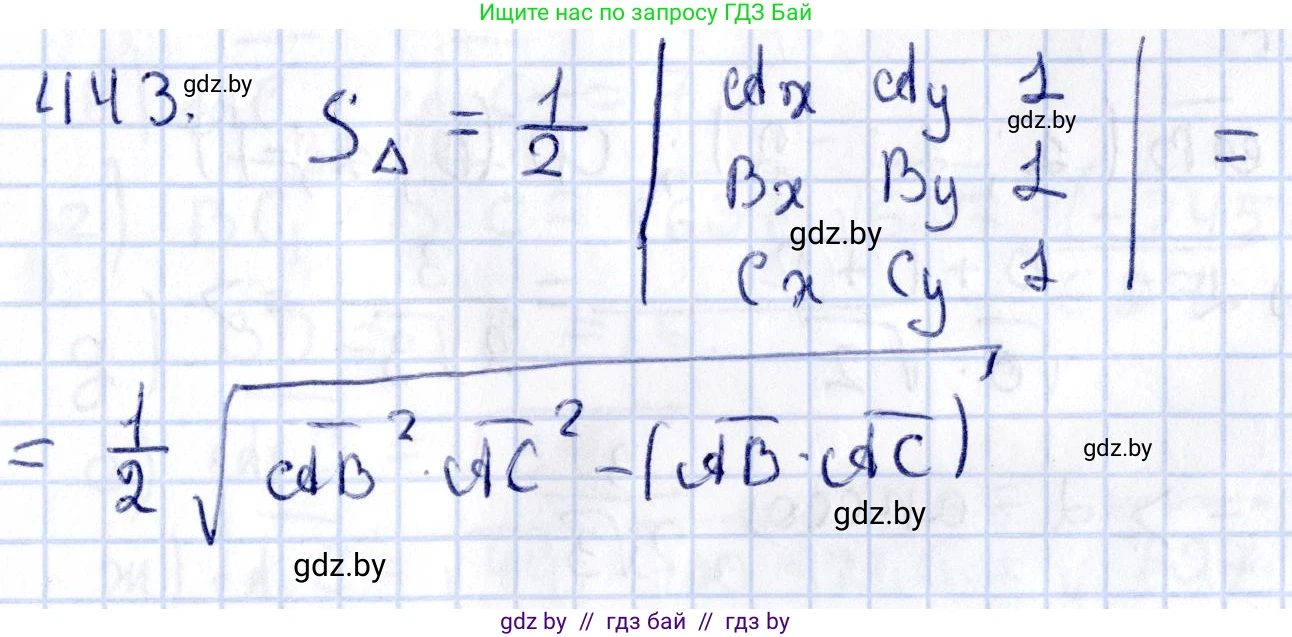 Ищите нас по запросу ГДЗ Бай
4143. gdz.by S△ = 1/2 | Ax Ay 1 |
gdz.by
| Bx By 1 | =
gdz.by
| Cx Cy 1 |
= 1/2 √(AB̅² · AC̅² − (AB̅ · AC̅)
gdz.by
gdz.by
gdz.by
gdz by // гдз бай // гдз by